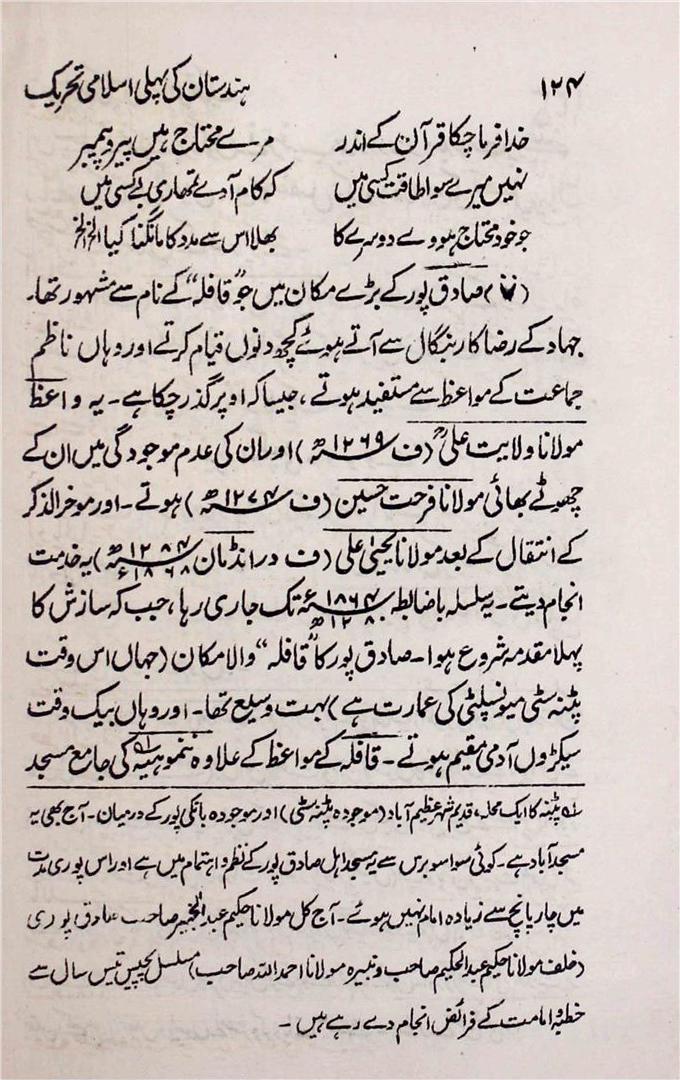 ۱۲۴ ہندستان کی پہلی اسلامی تحریک
خدا فرما چکا قرآن کے اندر مرے محتاج ہیں پیر و پیمبر
نہیں میرے سوا طاقت کسی میں کہ کام آوے تمھاری بے کسی میں
جو خود محتاج ہووے دوسرے کا بھلا اس سے مدد کا مانگنا کیا الخ الخ
صادق پور کے بڑے مکان میں جو "قافلہ" کے نام سے مشہور تھا۔
جہاد کے رضاکار بنگال سے آتے ہوئے کچھ دنوں قیام کرتے اور وہاں ناظم
جماعت کے مواعظ سے مستفید ہوتے، جیسا کہ اوپر گذر چکا ہے۔ یہ واعظ
مولانا ولایت علیؒ (ف ۱۲۶۹ھ) اور ان کی عدم موجودگی میں ان کے
چھوٹے بھائی مولانا فرحت حسین (ف ۱۲۷۴ھ) ہوتے۔ اور موخر الذکر
کے انتقال کے بعد مولانا یحییٰ علی (ف در انڈمان ۱۲۸۴ھ ۱۸۶۸ء) یہ خدمت
انجام دیتے۔ یہ سلسلہ باضابطہ ۱۸۶۴ء ۱۲۸۰ھ تک جاری رہا، جب کہ سازش کا
پہلا مقدمہ شروع ہوا۔ صادق پور کا "قافلہ" والا مکان (جہاں اس وقت
پٹنہ سٹی میونسپلٹی کی عمارت ہے) بہت وسیع تھا۔ اور وہاں بیک وقت
سیکڑوں آدمی مقیم ہوتے۔ قافلہ کے مواعظ کے علاوہ ننموہیہ۱ کی جامع مسجد
۱ پٹنہ کا ایک محلہ، قدیم شہر عظیم آباد (موجودہ پٹنہ سٹی) اور موجودہ بانکی پور کے درمیان۔ آج بھی یہ
مسجد آباد ہے۔ کوئی سوا سو برس سے یہ مسجد اہل صادق پور کے نظم و اہتمام میں ہے اور اس پوری مدت
میں چار پانچ سے زیادہ امام نہیں ہوئے۔ آج کل مولانا حکیم عبدالخبیر صاحب صادق پوری
(خلف مولانا حکیم عبدالحکیم صاحب و نبیرہ مولانا احمد اللہ صاحب) مسلسل پچیس تیس سال سے
خطبہ و امامت کے فرائض انجام دے رہے ہیں۔